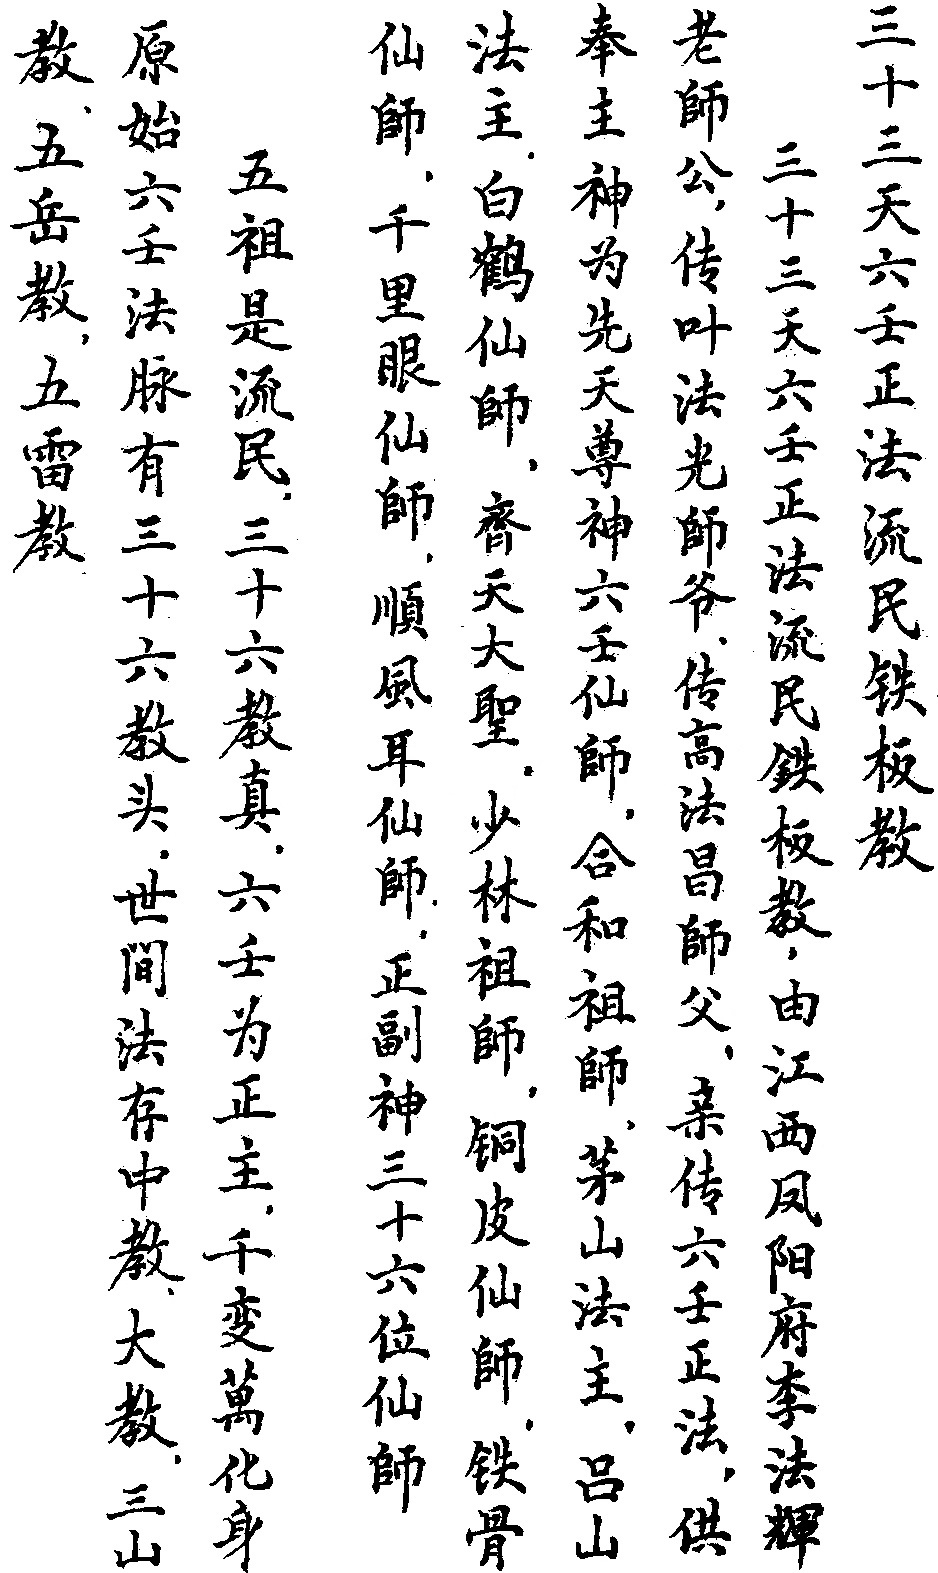 三十三天六壬正法流民铁板教
三十三天六壬正法流民鉄板教，由江西凤阳府李法輝
老師公，传叶法光師爷、传高法昌師父，亲传六壬正法，供
奉主神为先天尊神六壬仙師，合和祖師、茅山法主，吕山
法主、白鹤仙師，齊天大聖、少林祖師，铜皮仙師，铁骨
仙師、千里眼仙師，順風耳仙師、正副神三十六位仙師
五祖是流民，三十六教真、六壬为正主，千变萬化身
原始六壬法脉有三十六教头，世間法存中教、大教、三山
教、五岳教，五雷教